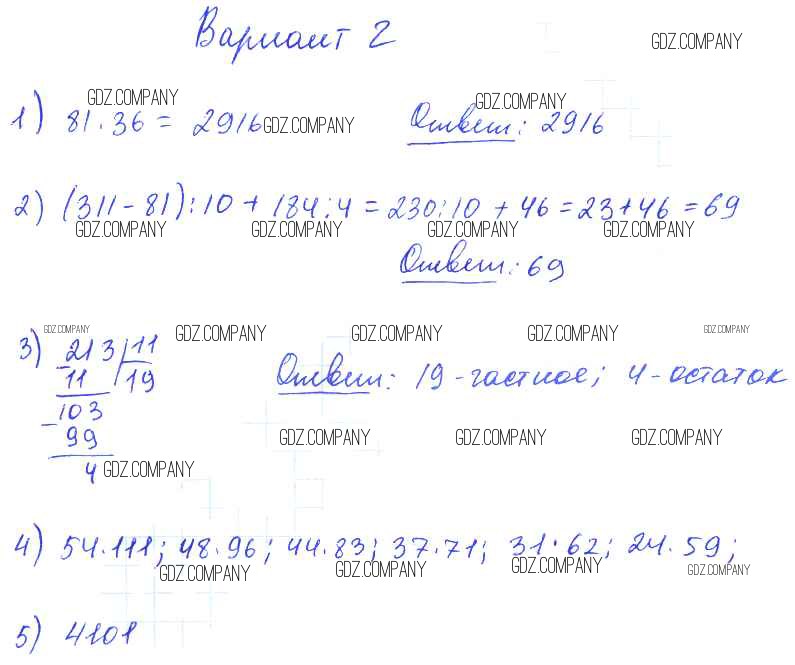 Вариант 2
GDZ.COMPANY
GDZ.COMPANY GDZ.COMPANY
1) 81·36 = 2916 GDZ.COMPANY Ответ: 2916
2) (311-81):10 + 184:4 = 230:10 + 46 = 23+46 = 69
GDZ.COMPANY GDZ.COMPANY GDZ.COMPANY GDZ.COMPANY
Ответ: 69
GDZ.COMPANY GDZ.COMPANY GDZ.COMPANY GDZ.COMPANY GDZ.COMPANY
3) - 213 | 11
11 | 19 Ответ: 19 - частное; 4 - остаток
- 103
99 GDZ.COMPANY GDZ.COMPANY GDZ.COMPANY
4 GDZ.COMPANY
4) 54·111; 48·96; 44·83; 37·71; 31·62; 24·59;
GDZ.COMPANY GDZ.COMPANY GDZ.COMPANY GDZ.COMPANY
5) 4101